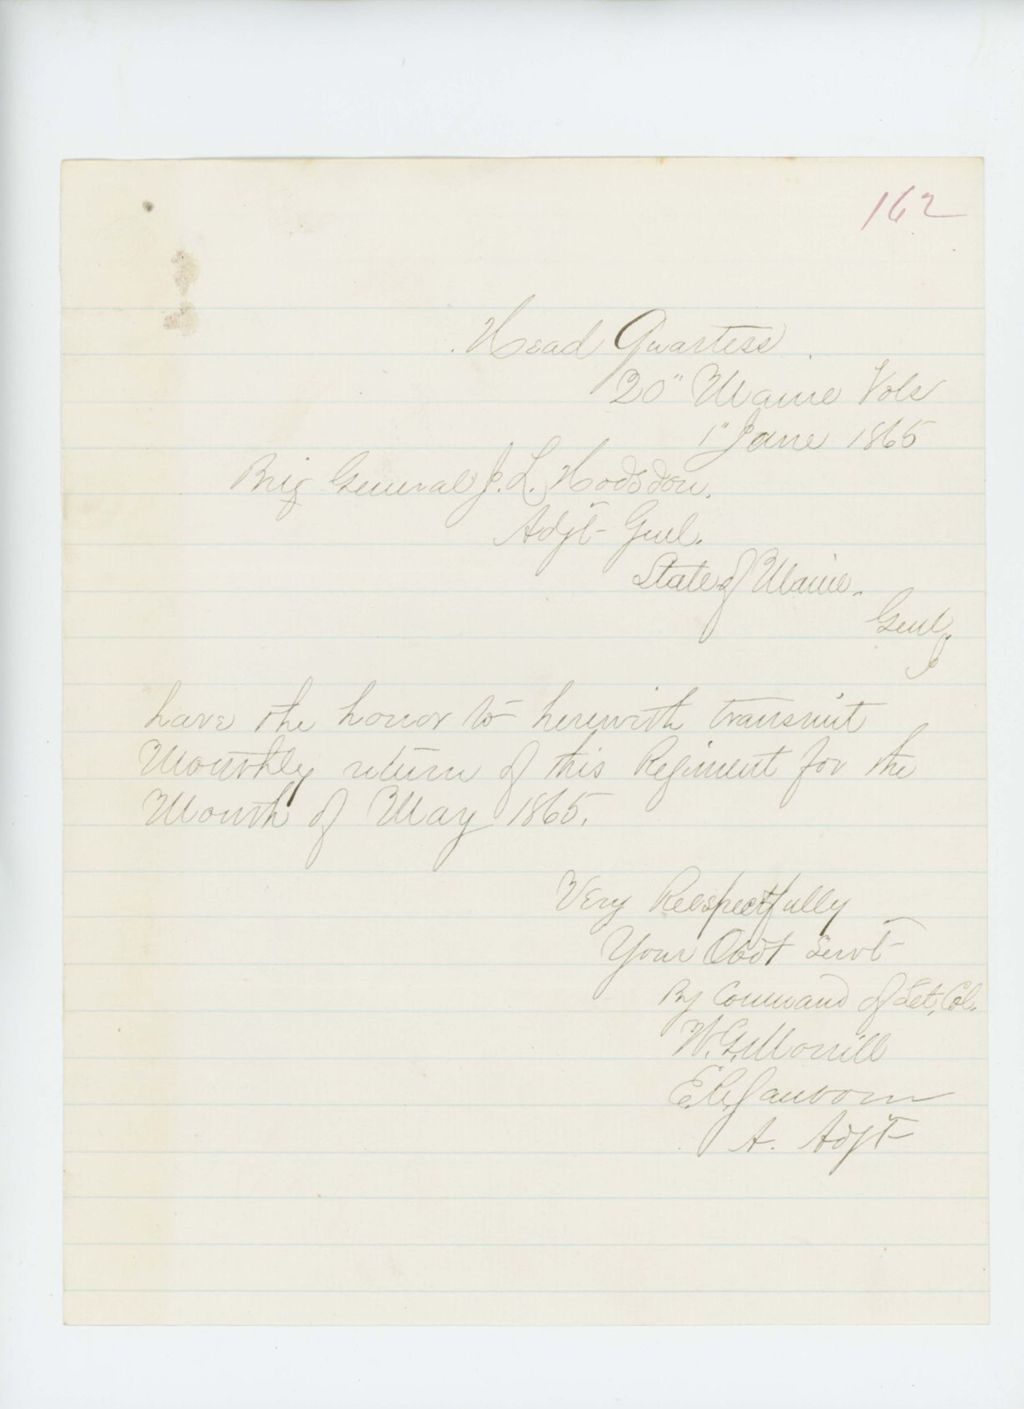 162
Head Quarters
20" Maine Vols
1" June 1865
Brig General J. L. Hodsdon,
Adjt Genl.
State of Maine.
Genl,
I
have the honor to herewith transmit
Monthly return of this Regiment for the
Month of May 1865.
Very Respectfully
Your Obdt Servt
By Command of Lt. Col.
W. G. Morrill
A. Adjt